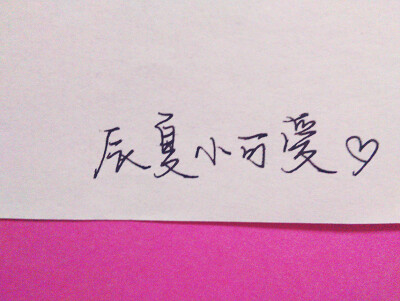 辰夏小可爱♡